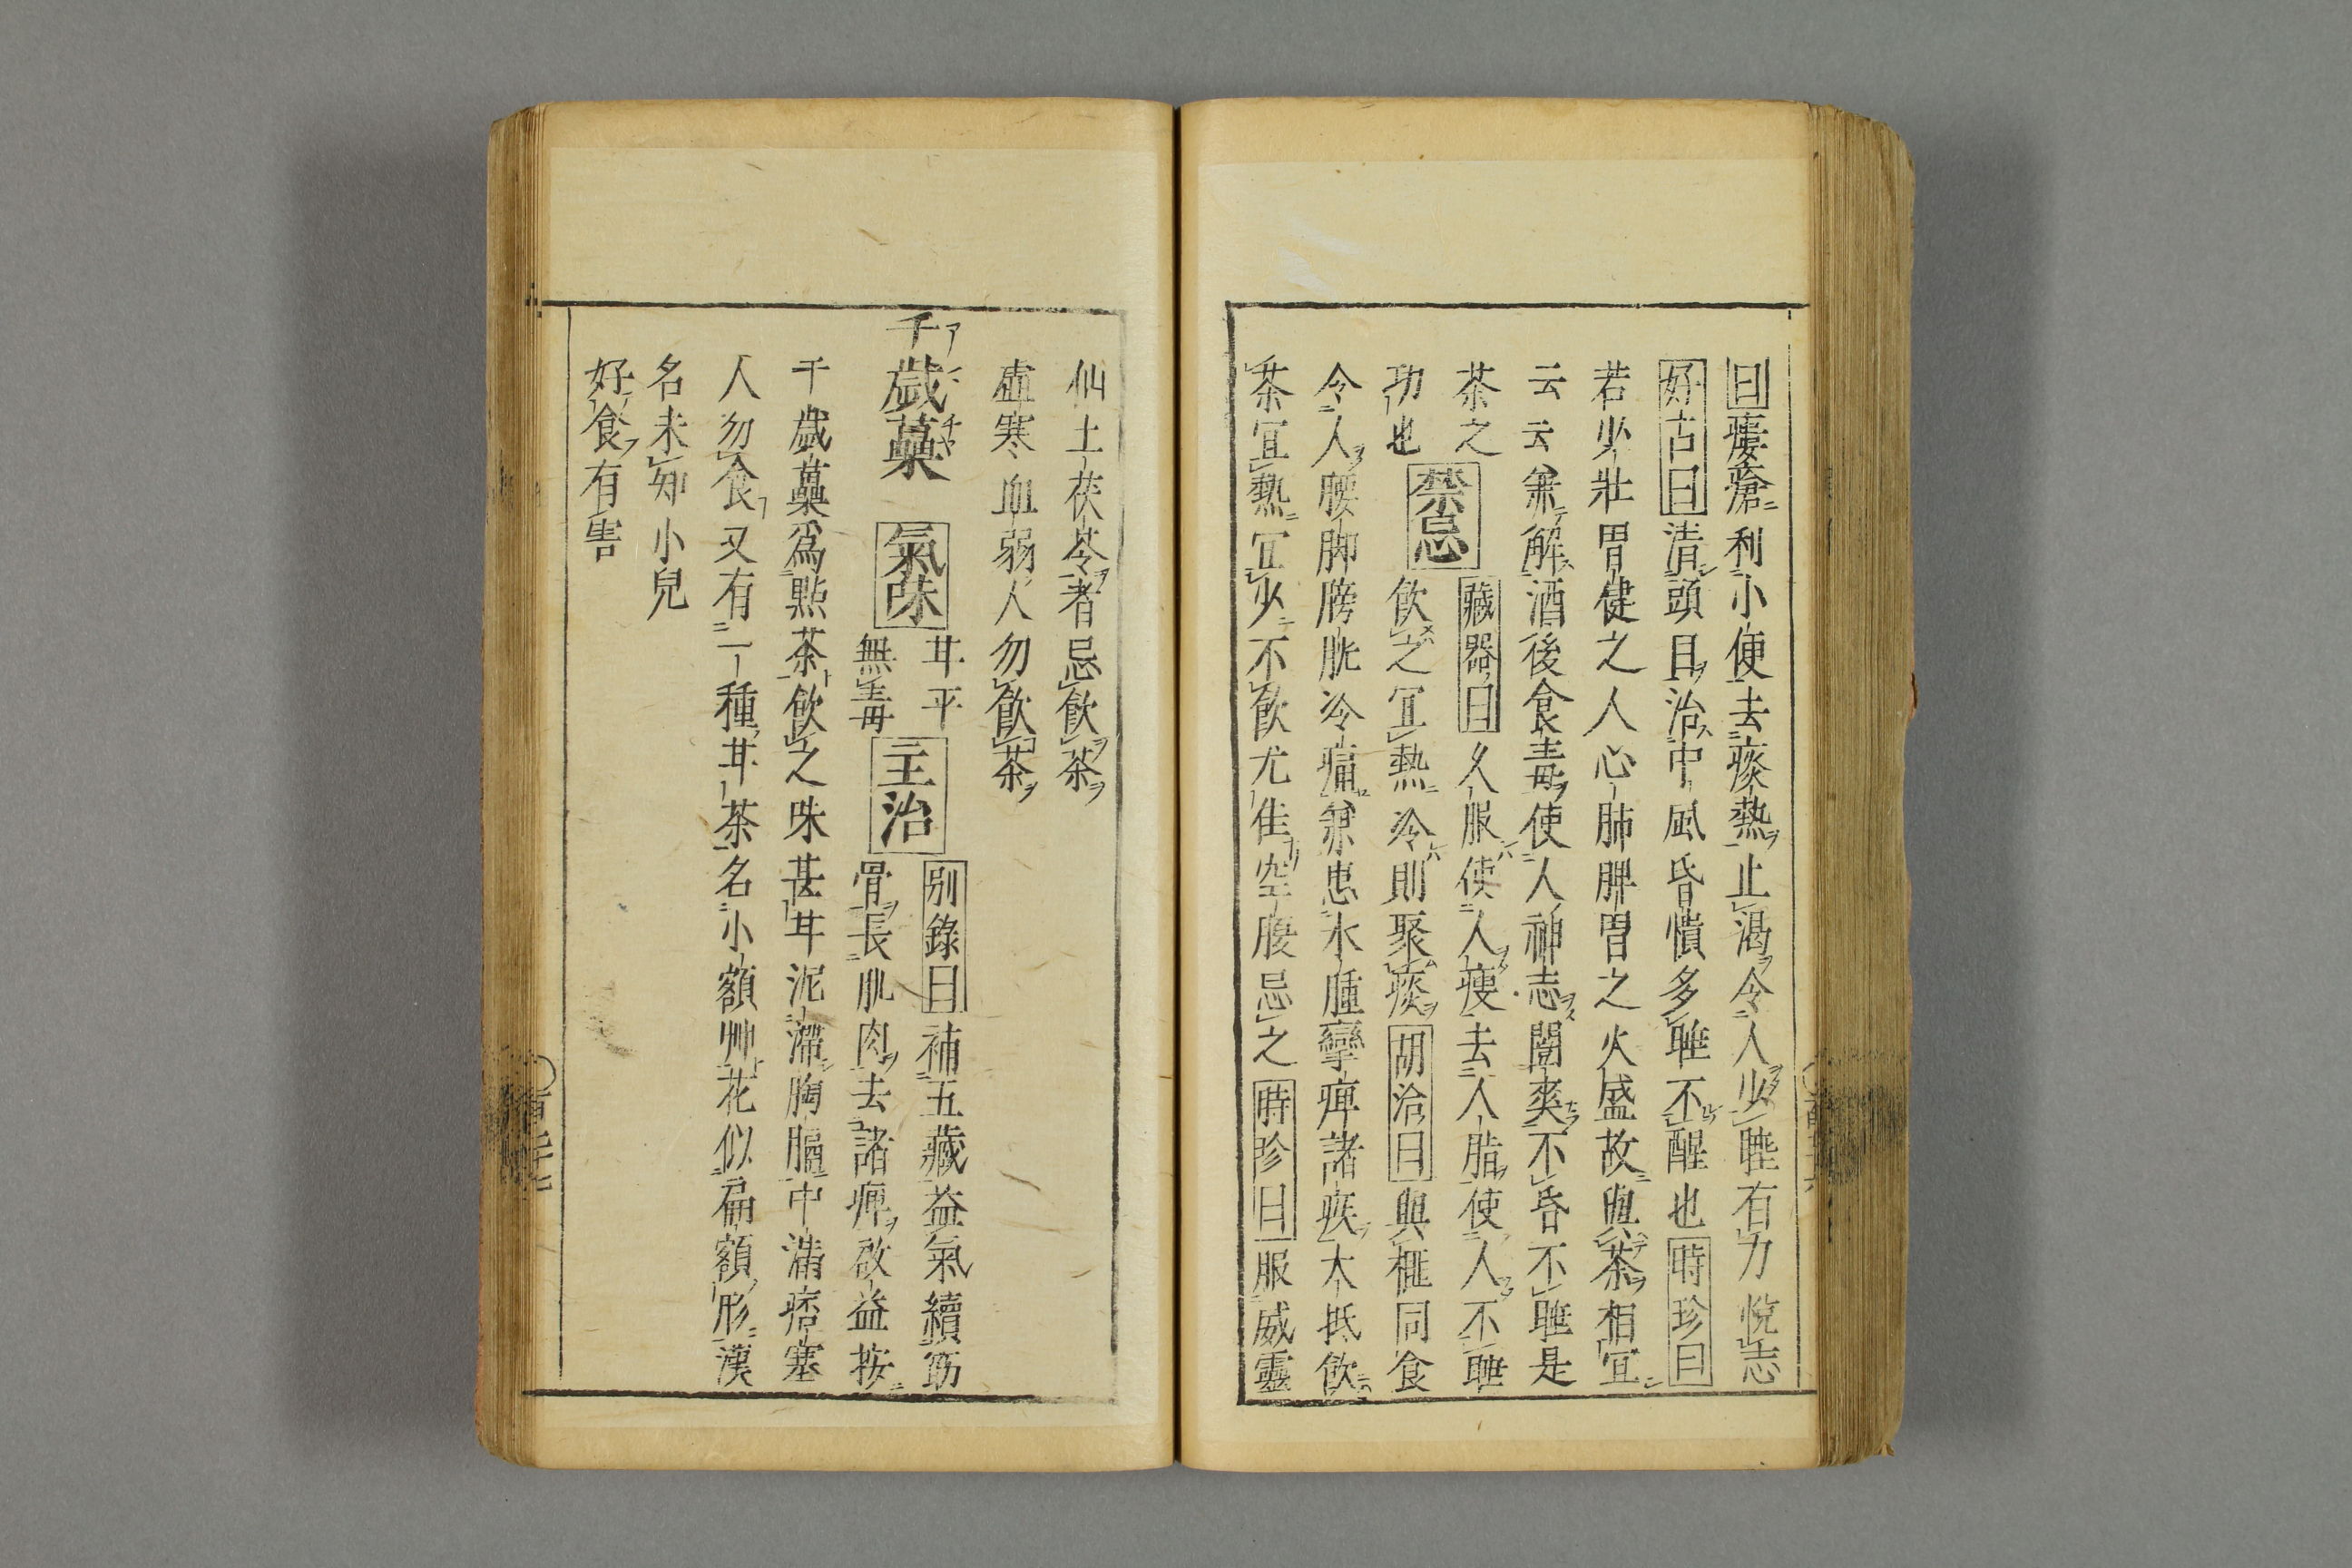 曰瘻瘡利小便去痰熱止渴令人少睡有力悅志
好古曰清頭目治中風昏憒多睡不醒也時珍曰
若少壯胃健之人心肺脾胃之火盛故與茶相宜
云云兼解酒後食毒使人神志闓爽不昏不睡是
茶之功也
禁忌
藏器曰久服使人瘦去人脂使人不睡
飲之宜熱冷則聚痰胡洽曰與榧同食
令人腰脚膀胱冷痛兼患水腫攣痺諸疾大抵飲
茶宜熱宜少不飲尤佳空腹忌之時珍曰服威靈
仙土茯苓者忌飲茶
虛寒血弱人勿飲茶
千歲蘽 アマチヤ
氣味
甘平
無毒
主治
別錄曰補五藏益氣續筋
骨長肌肉去諸痺
千歲蘽爲點茶飲之味甚甘泥滯胸膈中滿痞塞
人勿食又有一種甘茶名小額艸花似扁額形漢
名未知小兒
好食有害